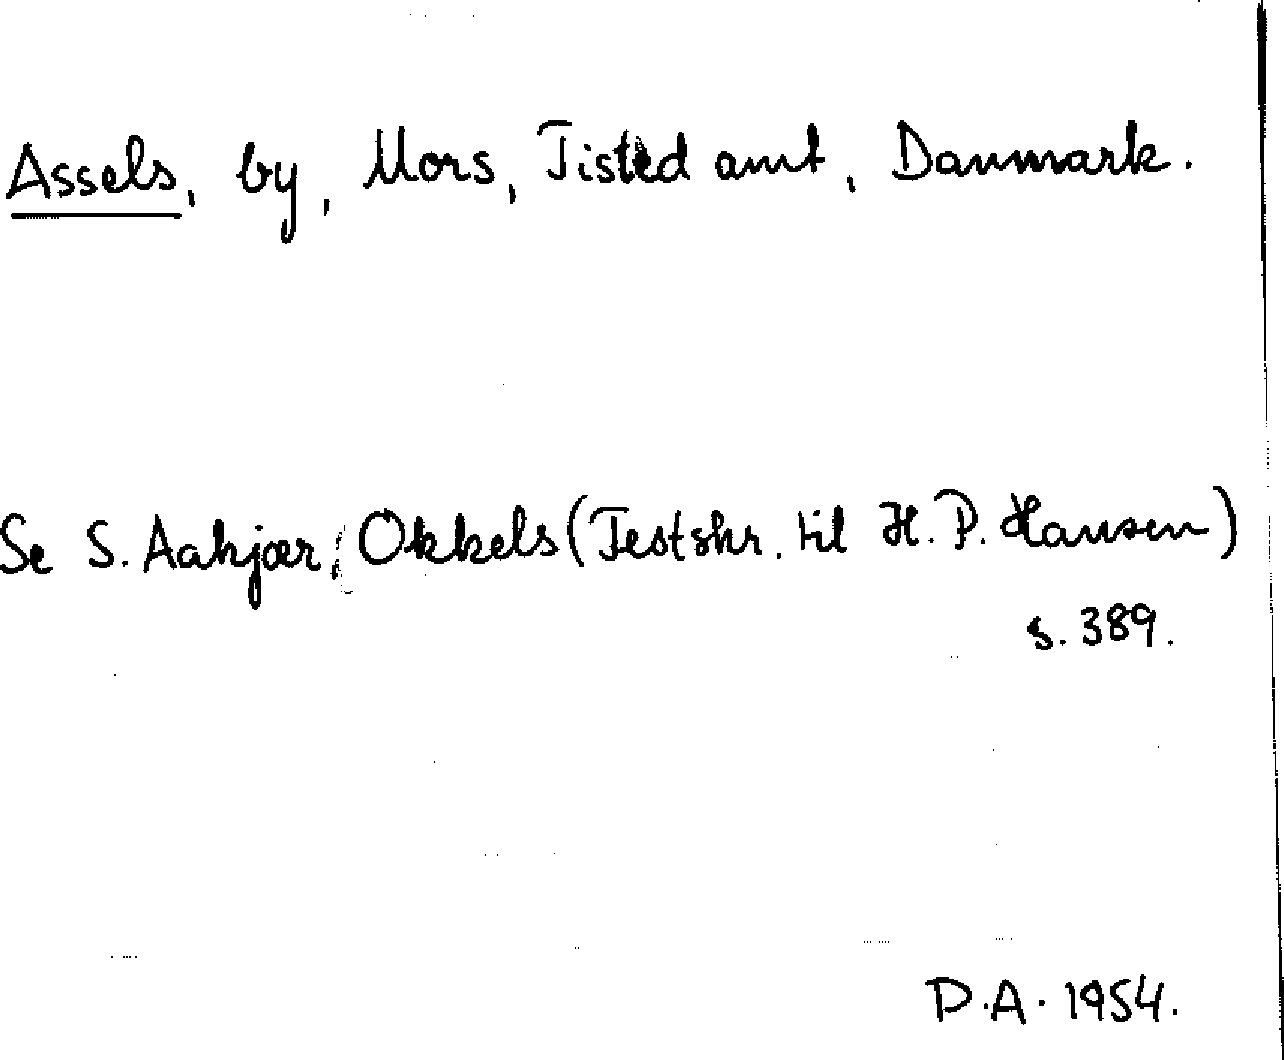 Assels, by, Mors, Tisted amt, Danmark.
Se S. Aakjær, Okkels (Festskr. til H. P. Hansen)
s. 389.
D.A. 1954.